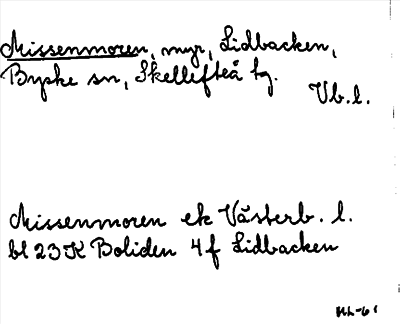 Missenmoren, myr, Lidbacken,
Bygke sn, Skellefteå tg.
Vb.l.
Missenmoren ek Västerb. l.
bl 23 K Boliden 4 f Lidbacken
HL-61